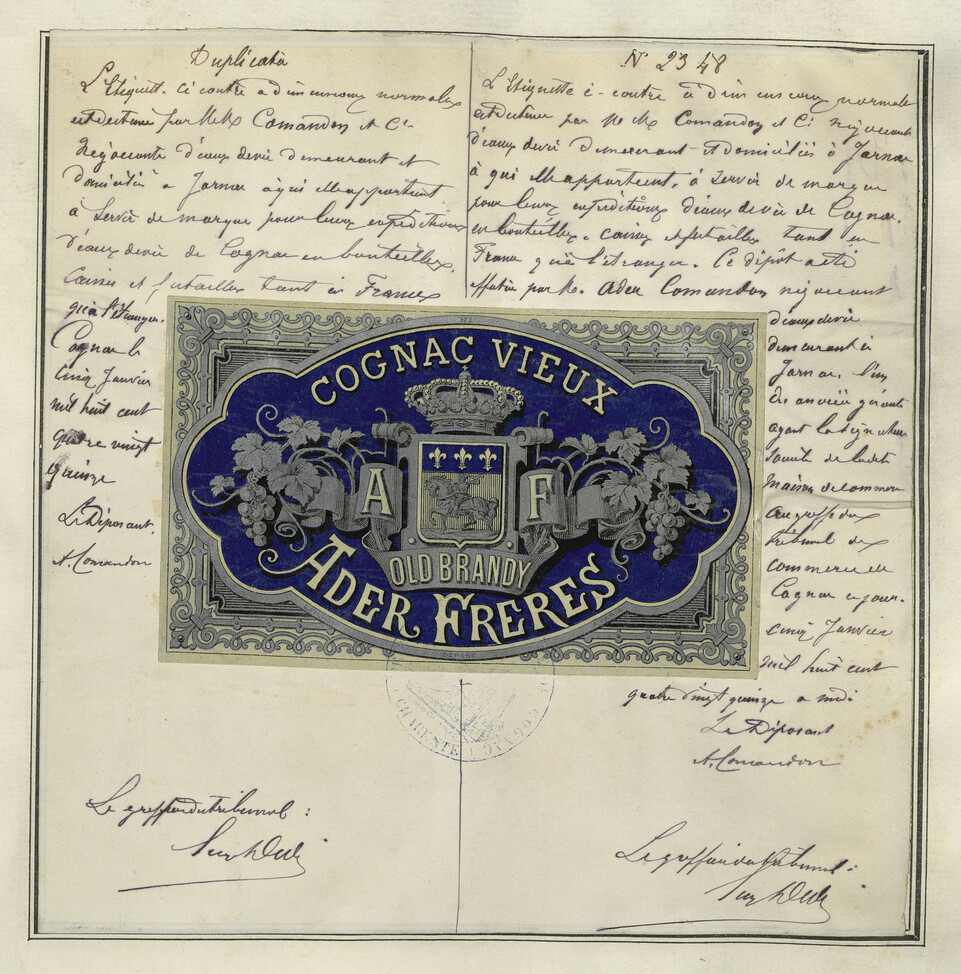 Duplicata
L'Etiquette ci contre a dimensions normales
est destinée par M.M. Comandon et Cie
Négociants d'eaux de vie demeurant et
domiciliés à Jarnac à qui elle appartient
à servir de marque pour leurs expéditions
d'eaux de vie de Cognac en bouteilles,
Caisses et futailles tant en France
qu'à l'étranger.
Cognac le
Cinq Janvier
mil huit cent
quatre vingt
quinze
Le Déposant
A. Comandon
Le greffier du tribunal :
N° 2348
L'Etiquette ci-contre à dimensions normales
est destinée par M. M. Comandon et Cie négociants
d'eaux de vie demeurant et domiciliés à Jarnac
à qui elle appartient, à servir de marque
pour leurs expéditions d'eaux de vie de Cognac
en bouteilles, caisses et futailles tant en
France qu'à l'étranger. Ce dépôt a été
effectué par M. Ader Comandon négociant
d'eaux de vie
demeurant à
Jarnac, l'un
des associés gérants
ayant la signature
sociale de ladite
maison de commerce
au greffe du
tribunal de
commerce de
Cognac ce jour
cinq Janvier
mil huit cent
quatre vingt quinze a midi
Le Déposant
A. Comandon
Le greffier du tribunal :
COGNAC VIEUX
A F
OLD BRANDY
ADER FRERES
DÉPOSÉ
CHARENTE
COGNAC